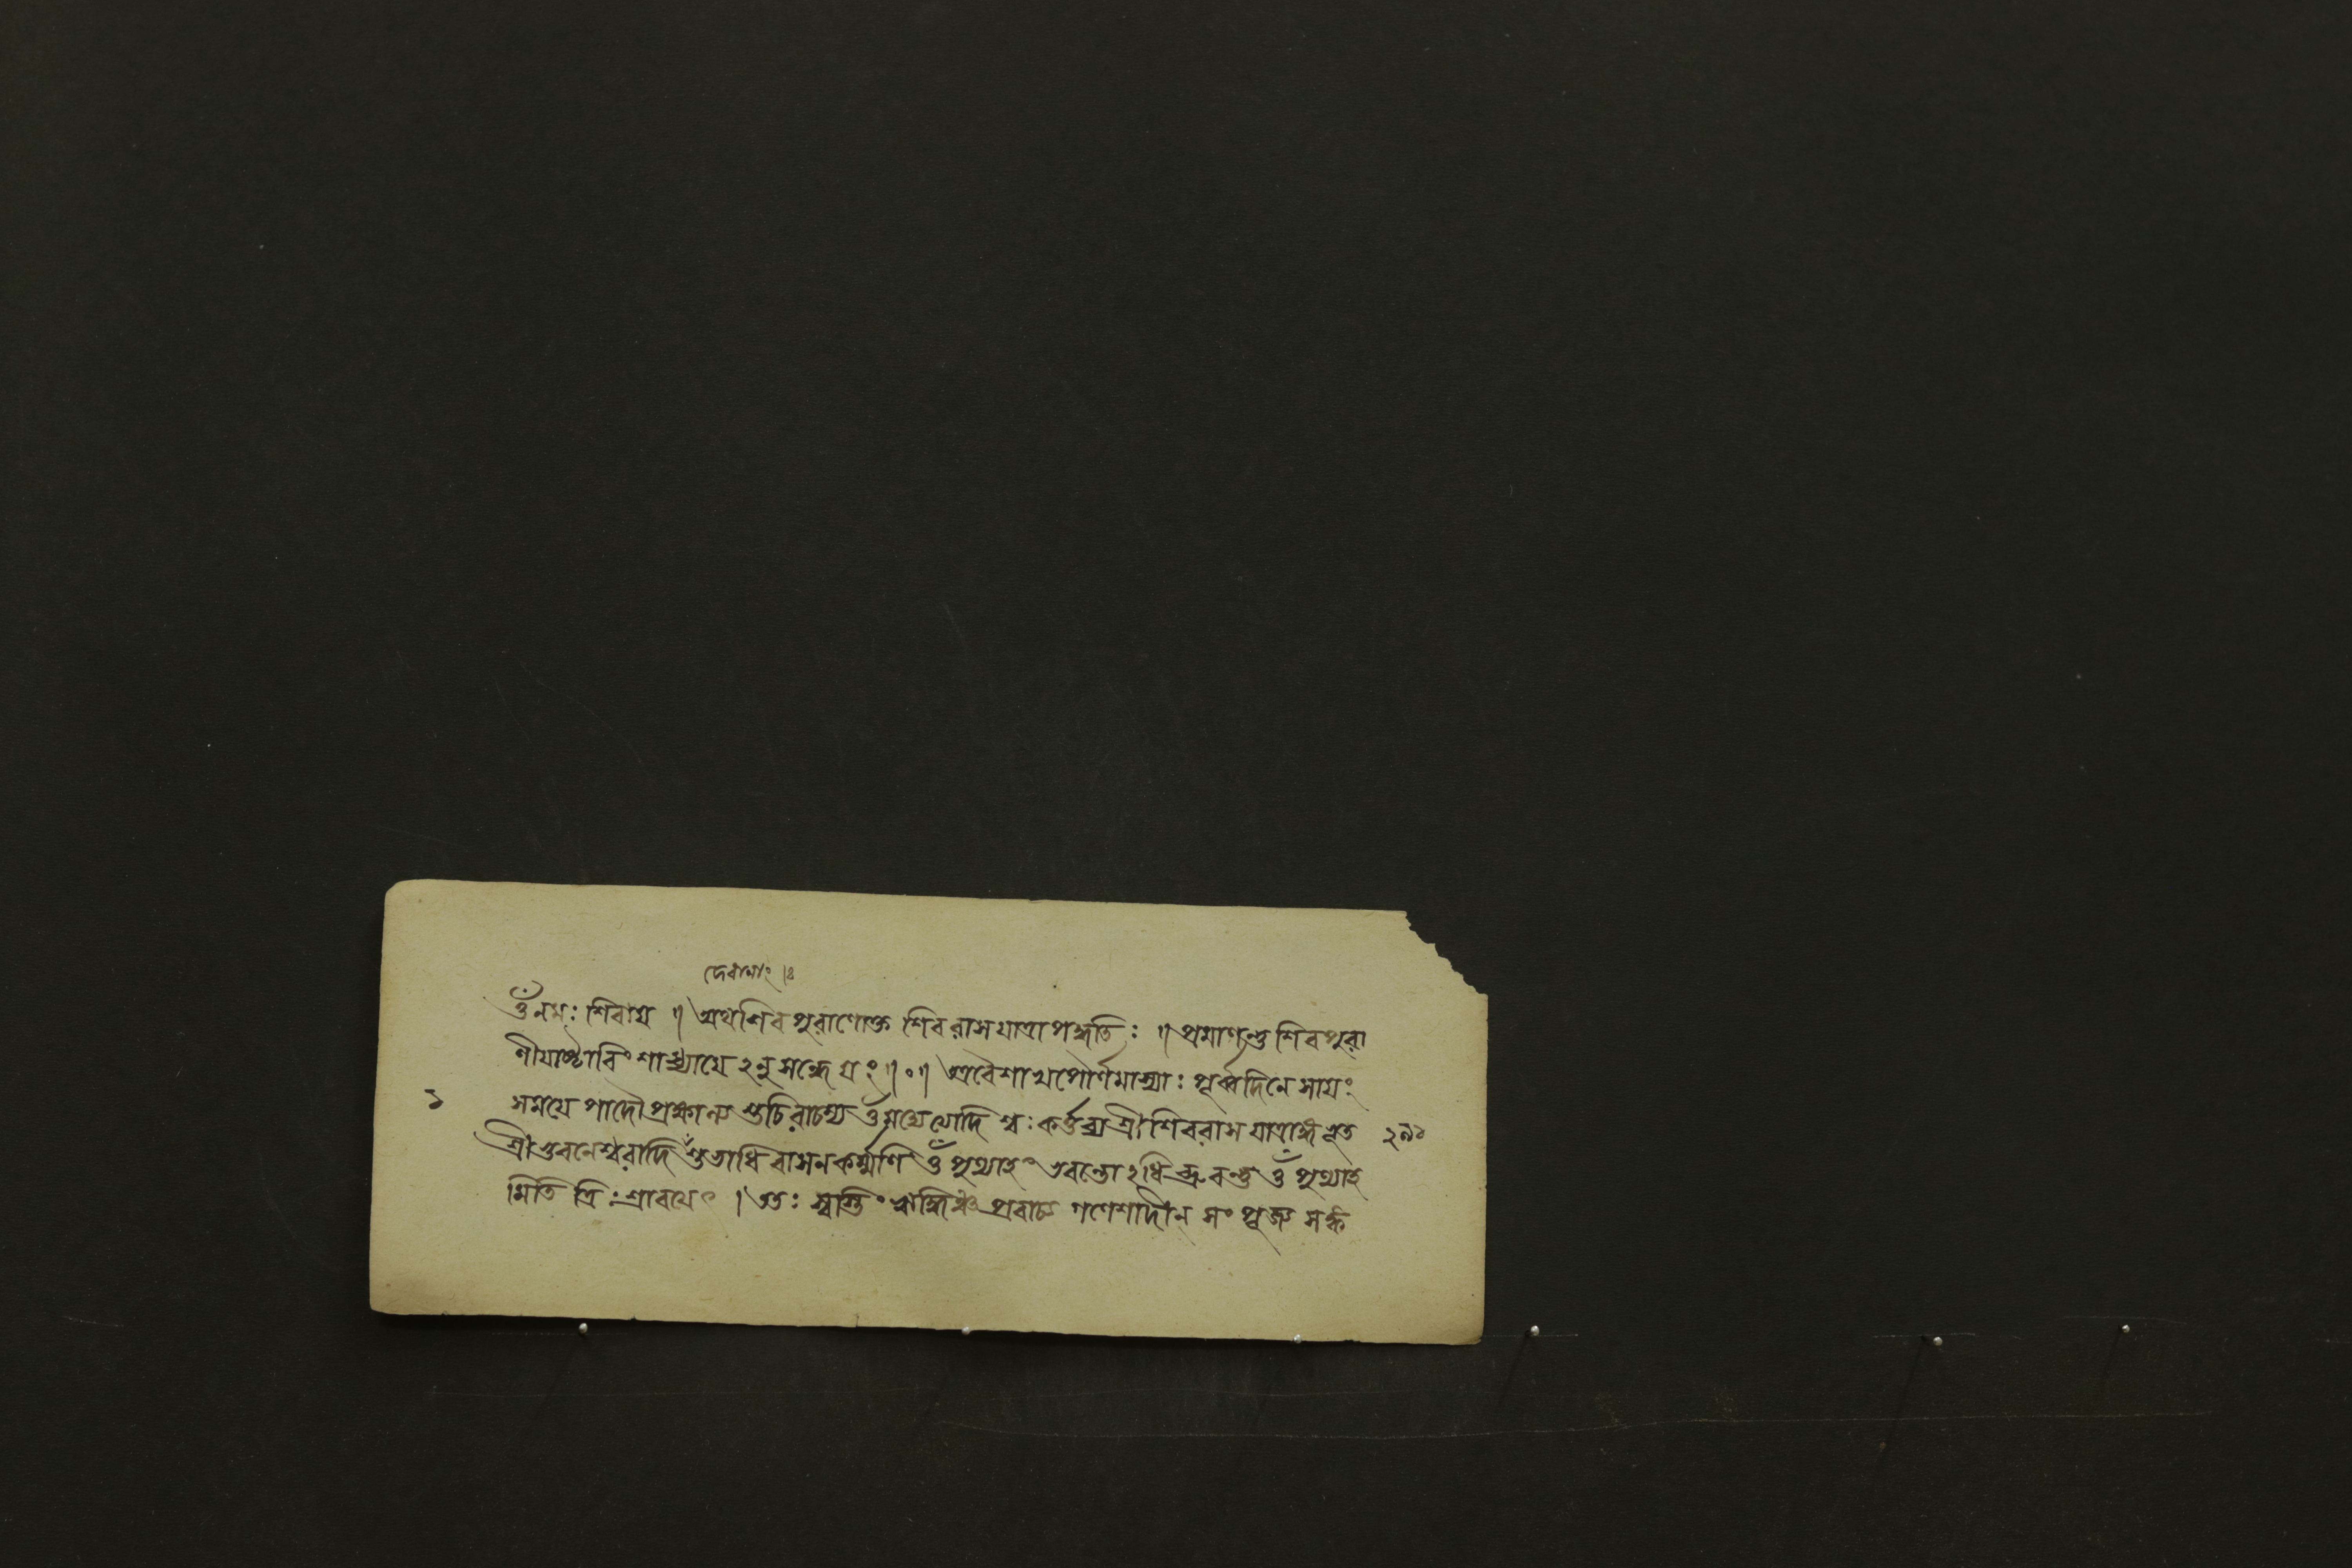 ওঁ নমঃ শিবায় ॥ অথ শিবপুরাণোক্ত শিবরাসযাত্রাপদ্ধতিঃ ॥ প্রমাণন্তু শিবপুরা
ণীয়াষ্টাবিংশাধ্যায়েঽনুসন্ধেয়ং ॥০॥ অত্র বৈশাখপৌর্ণমাস্যাঃ পূর্ব্বদিনে সায়ং
১
সময়ে পাদৌ প্রক্ষাল্য শুচিরাচম্য ওঁ মদ্যেত্যাদি শ্বঃকর্ত্তব্য শ্রীশিবরাসযাত্রাঙ্গভূত
২৯১
শ্রীভুবনেশ্বরাদি শুভাধিবাসনকর্ম্মণি ওঁ পুণ্যাহং ভবন্তোঽধিব্রুবন্তু ওঁ পুণ্যাহ
মিতি ত্রিঃ শ্রাবয়েৎ । ততঃ স্বস্তিং ঋদ্ধিঞ্চ প্রবাচ্য গণেশাদীন্ সংপূজ্য সঙ্ক